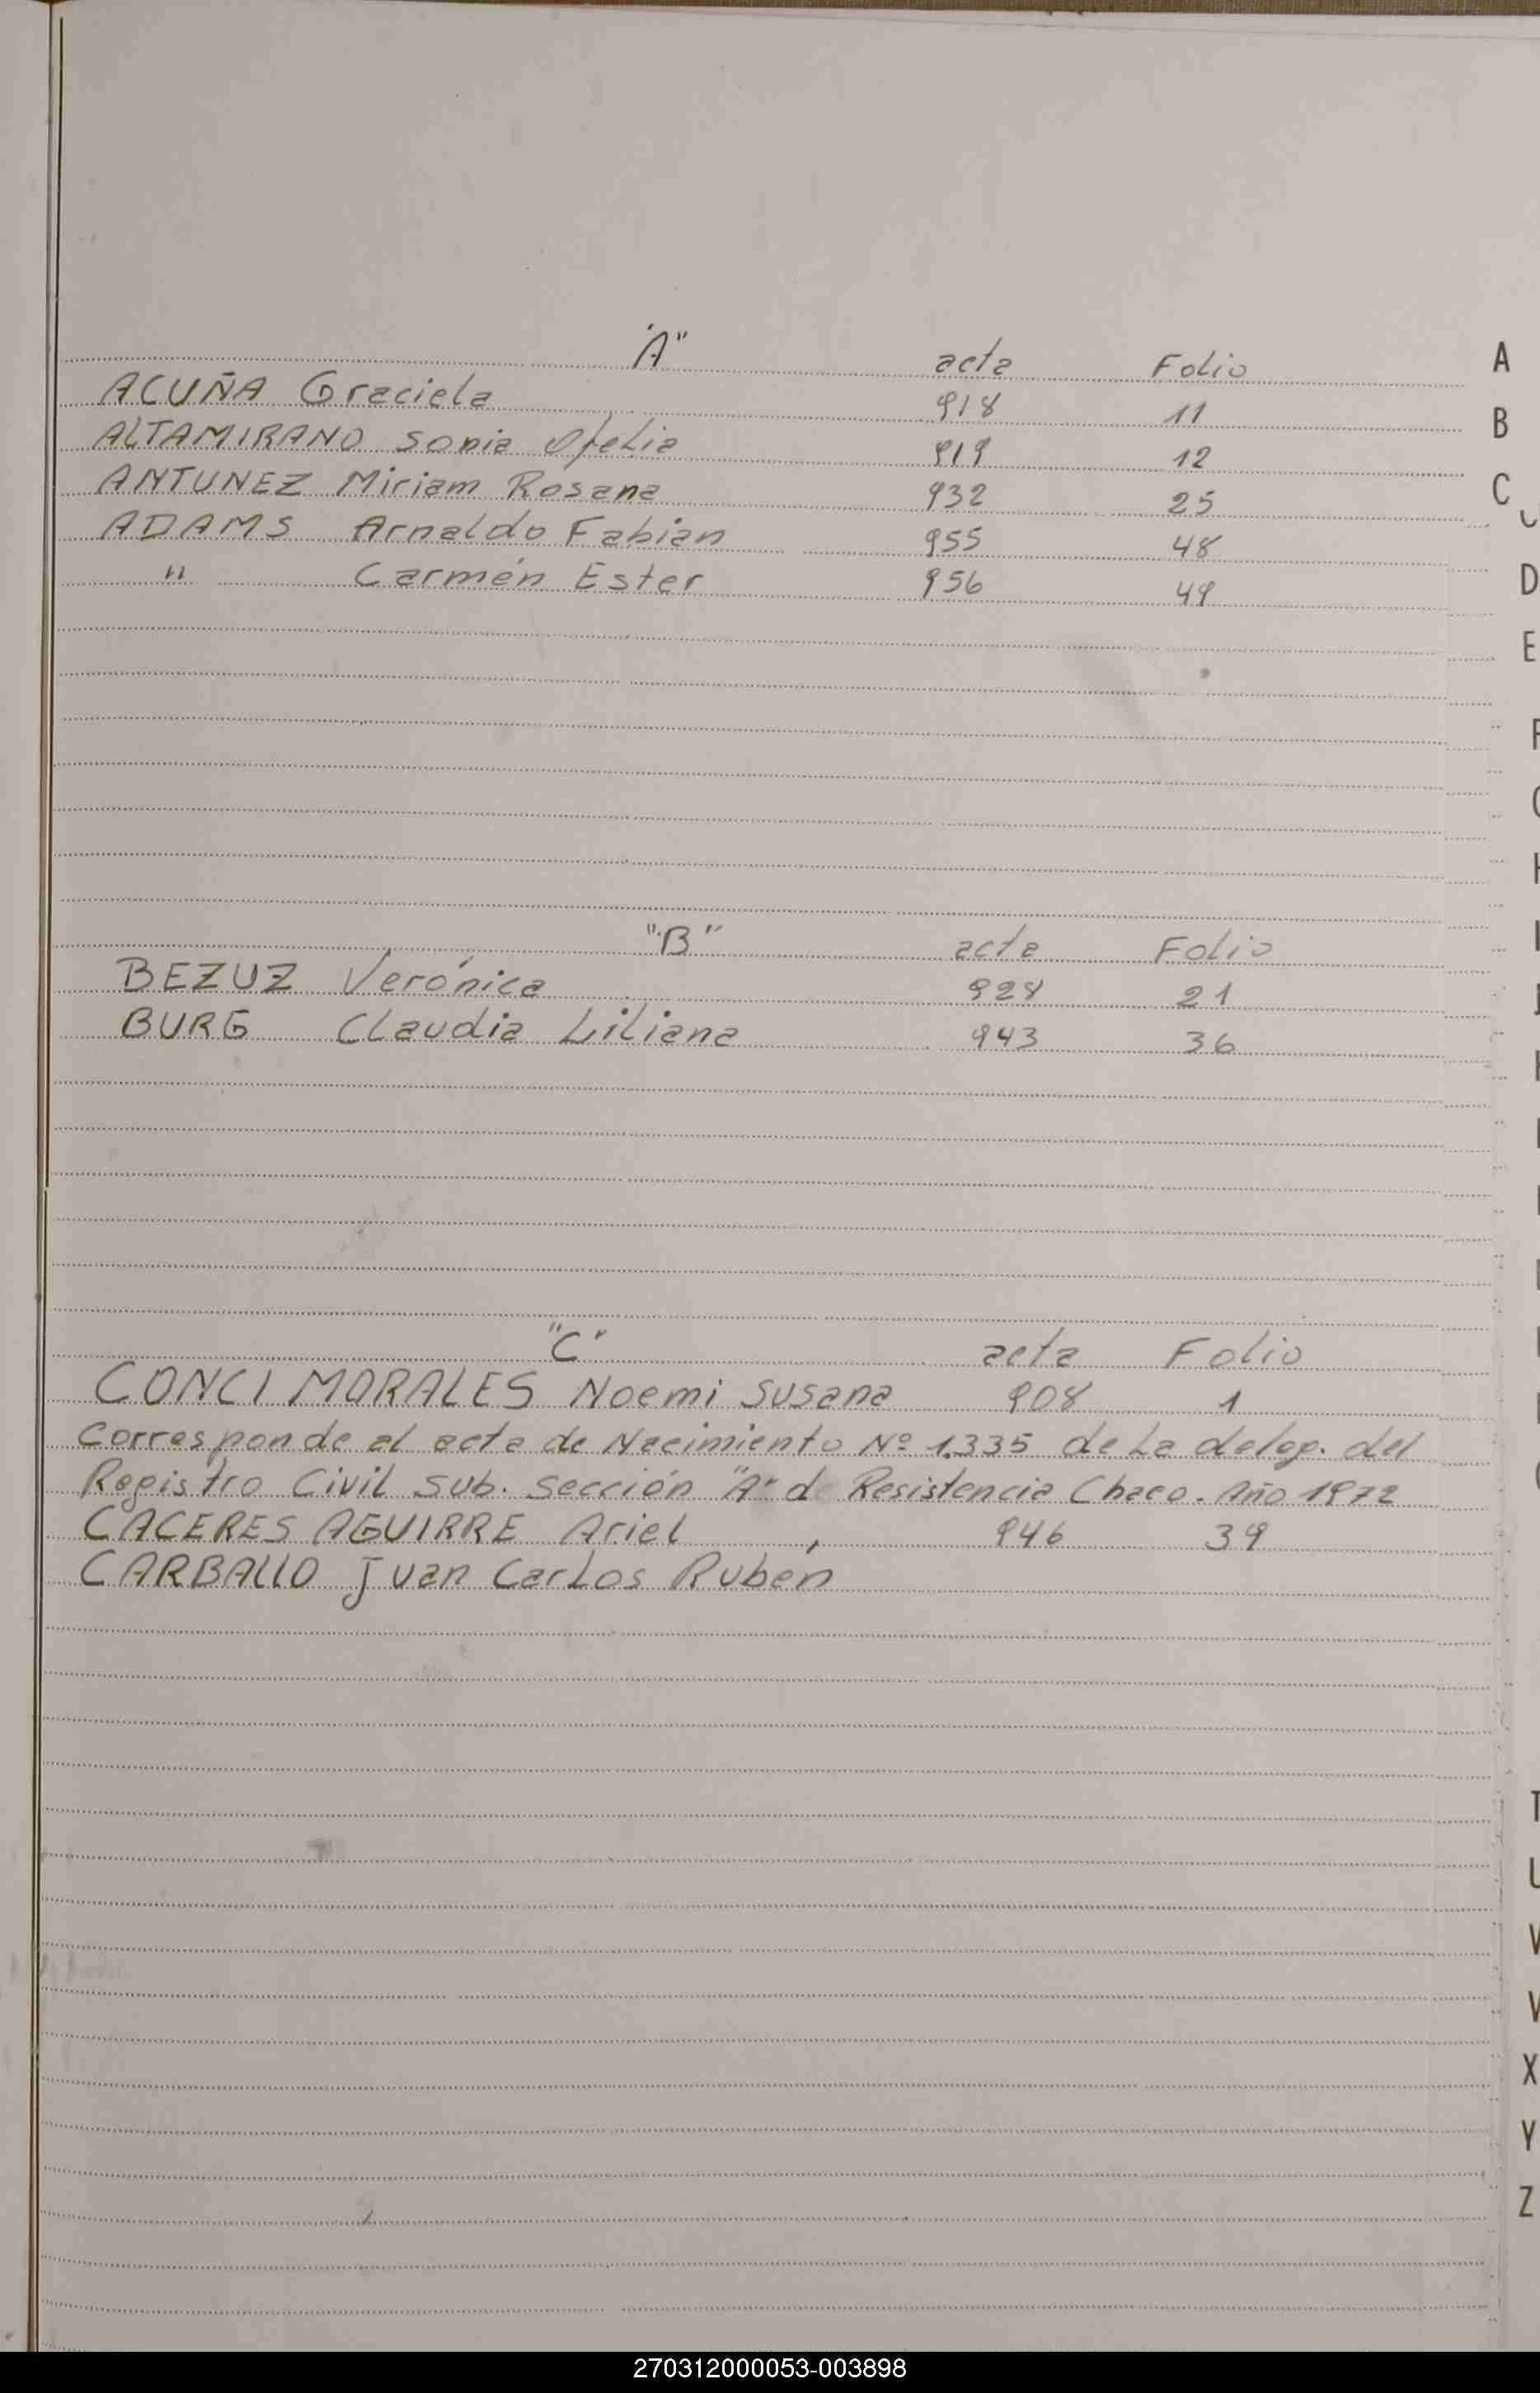 "A" acta Folio A
ACUÑA Graciela 918 11
B
ALTAMIRANO Sonia Ofelia 919 12
ANTUNEZ Miriam Rosana 932 25
C
ADAMS Arnaldo Fabian 955 48
" Carmén Ester 956 49
D
E
"B" acta Folio
BEZUZ Verónica 928 21
BURG Claudia Liliana 943 36
"C" acta Folio
CONCI MORALES Noemi Susana 908 1
Corresponde al acta de Nacimiento Nº 1.335 de La deleg. del
Registro Civil Sub. Sección "A" de Resistencia Chaco. Año 1972
CACERES AGUIRRE Ariel 946 39
CARBALLO Juan Carlos Rubén
T
U
V
X
Y
Z
270312000053-003898